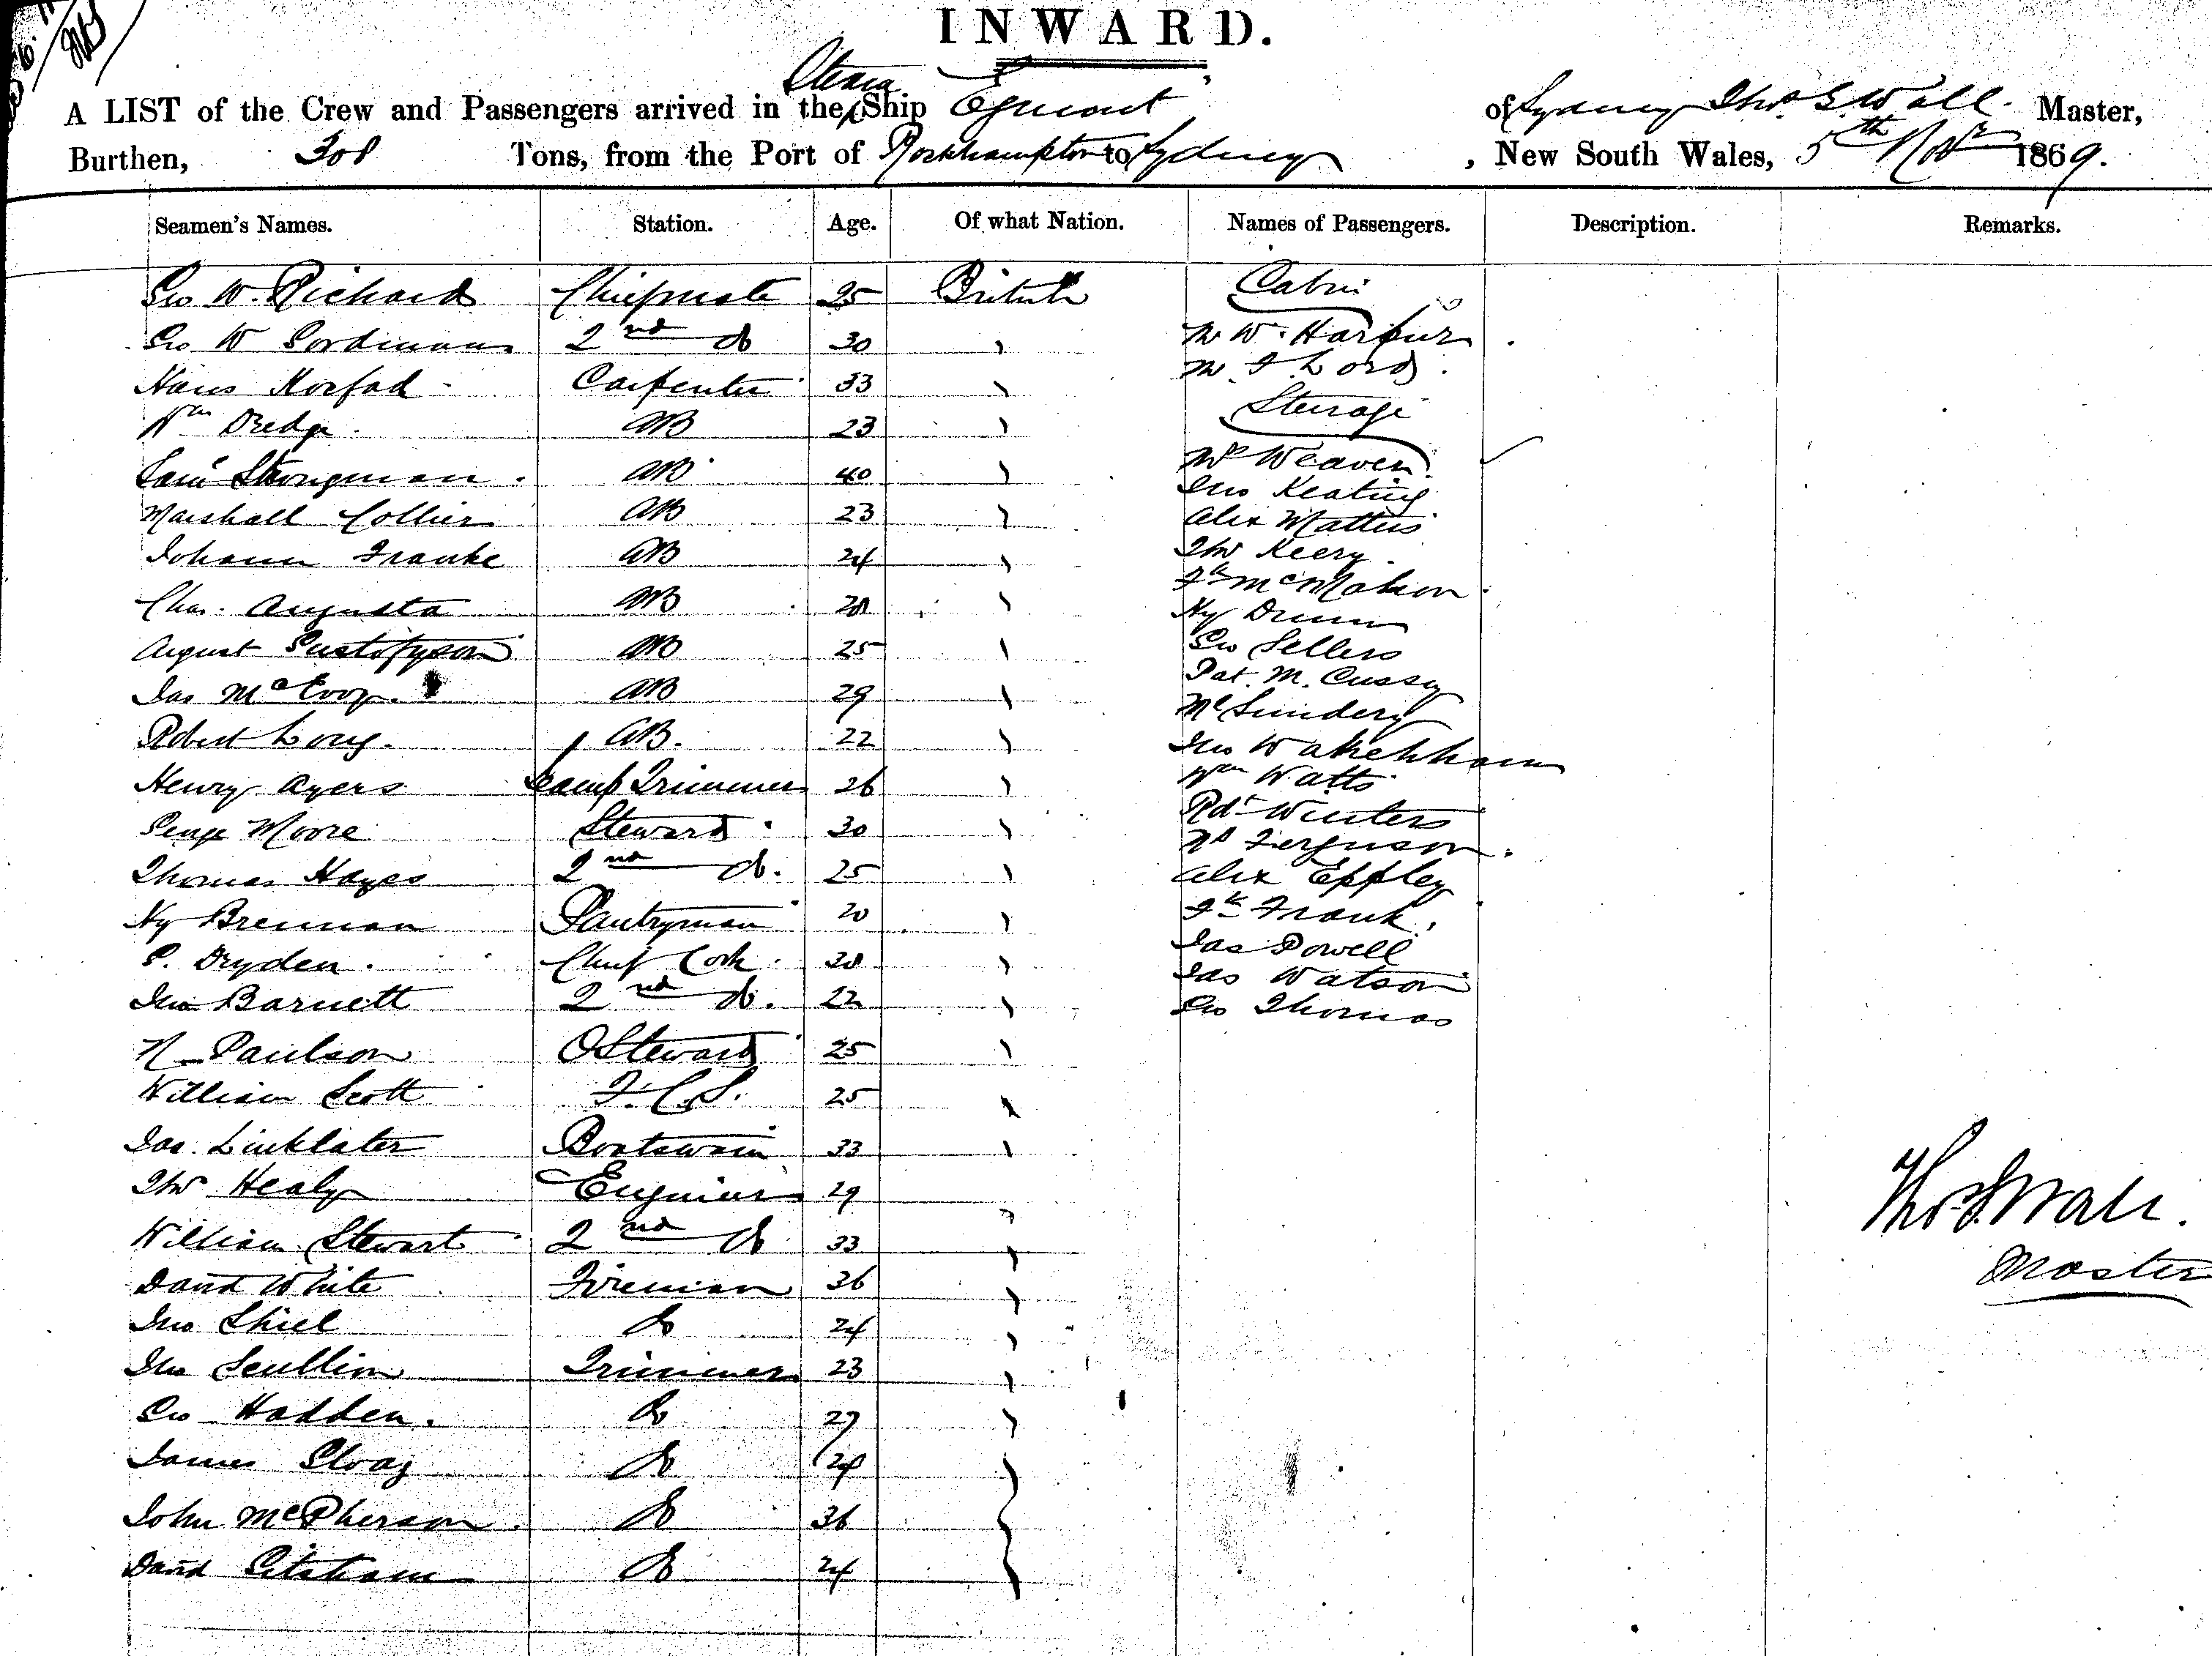 INWARD.
A LIST of the Crew and Passengers arrived in the Steam Ship Egmont of Sydney Thos S. Wall Master,
Burthen, 308 Tons, from the Port of Rockhampton to Sydney, New South Wales, 5th Novr 1869.
Seamen's Names. Station. Age. Of what Nation. Names of Passengers. Description. Remarks.
Geo W. Richard Chiefmate 25 British Cabin
Geo W 2nd do 30 Mr W. Harpur
Hans Carpenter 33 Mr J Lord
Wm Dredge AB 23 Steerage
Saml Strongman AB 40 Mr Weaven
Marshall Collier AB 23 Jno Keating
Johann Franke AB 24 Alex Mattus
Chas. Augusta AB 28 Thos Keery
August Gustofyson AB 25 Fk McMahon
Jas McEvoy AB 29 Hy Dunn
Robert Long. AB. 22 Geo Sellers
Henry Ayers Lamp Trimmer 26 Pat. M. Cussy
George Moore Steward 30
Thomas Hayes 2nd do. 25 Jno Wakehham
Hy Brennan Pantryman 20 Wm Watts
P. Dryden. Chief Cook 28 Rdt Winters
Jno Barnett 2nd do. 22 Ferguson
N Paulson OSteward 25 Alex Eppley
William Scott F.C.S. 25 Fk Frank
Jas. Linklater Boatswain 33 Jas Powell
Thos Healy Engineer 29 Jas Watson
William Stewart 2nd do 33 Geo Thomas
David White Fireman 36
Jno Shiel do 24
Jno Scullion Trimmer 23
Geo Hadden. do 27
James do 24
John McPherson do 36
David do 24
Thos S. Wall.
Master